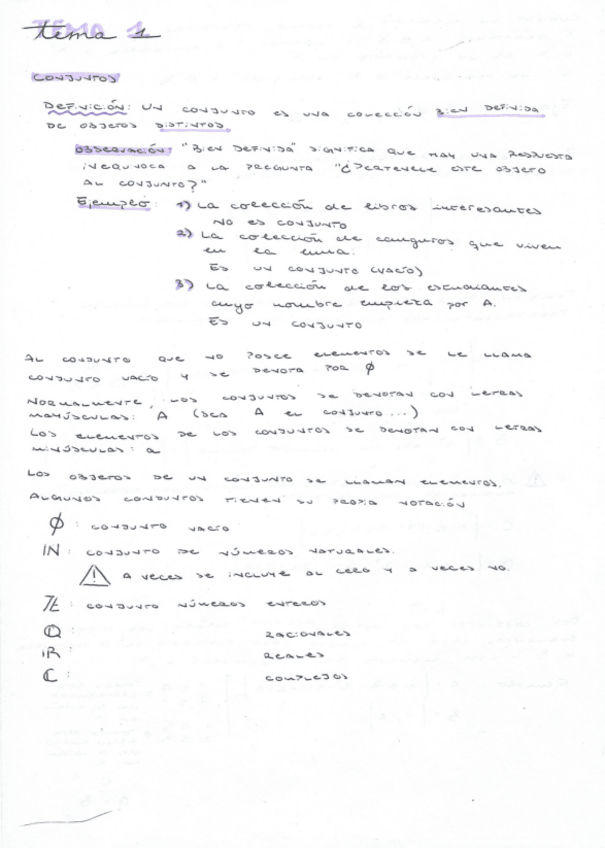 Tema 1
CONJUNTOS
DEFINICIÓN: UN CONJUNTO ES UNA COLECCIÓN BIEN DEFINIDA
DE OBJETOS DISTINTOS.
OBSERVACIÓN: "BIEN DEFINIDA" SIGNIFICA QUE HAY UNA RESPUESTA
INEQUÍVOCA A LA PREGUNTA "¿PERTENECE ESTE OBJETO
AL CONJUNTO?"
Ejemplo: 1) La colección de libros interesantes
NO ES CONJUNTO
2) La colección de canguros que viven
en la luna.
ES UN CONJUNTO (VACÍO)
3) La colección de los estudiantes
cuyo nombre empieza por A.
ES UN CONJUNTO
AL CONJUNTO QUE NO POSEE ELEMENTOS SE LE LLAMA
CONJUNTO VACÍO Y SE DENOTA POR ∅
NORMALMENTE, LOS CONJUNTOS SE DENOTAN CON LETRAS
MAYÚSCULAS: A (SEA A EL CONJUNTO...)
LOS ELEMENTOS DE LOS CONJUNTOS SE DENOTAN CON LETRAS
MINÚSCULAS: a
LOS OBJETOS DE UN CONJUNTO SE LLAMAN ELEMENTOS.
ALGUNOS CONJUNTOS TIENEN SU PROPIA NOTACIÓN
∅: CONJUNTO VACÍO
ℕ: CONJUNTO DE NÚMEROS NATURALES.
⚠ A VECES SE INCLUYE AL CERO Y A VECES NO.
ℤ: CONJUNTO NÚMEROS ENTEROS
ℚ: RACIONALES
ℝ: REALES
ℂ: COMPLEJOS